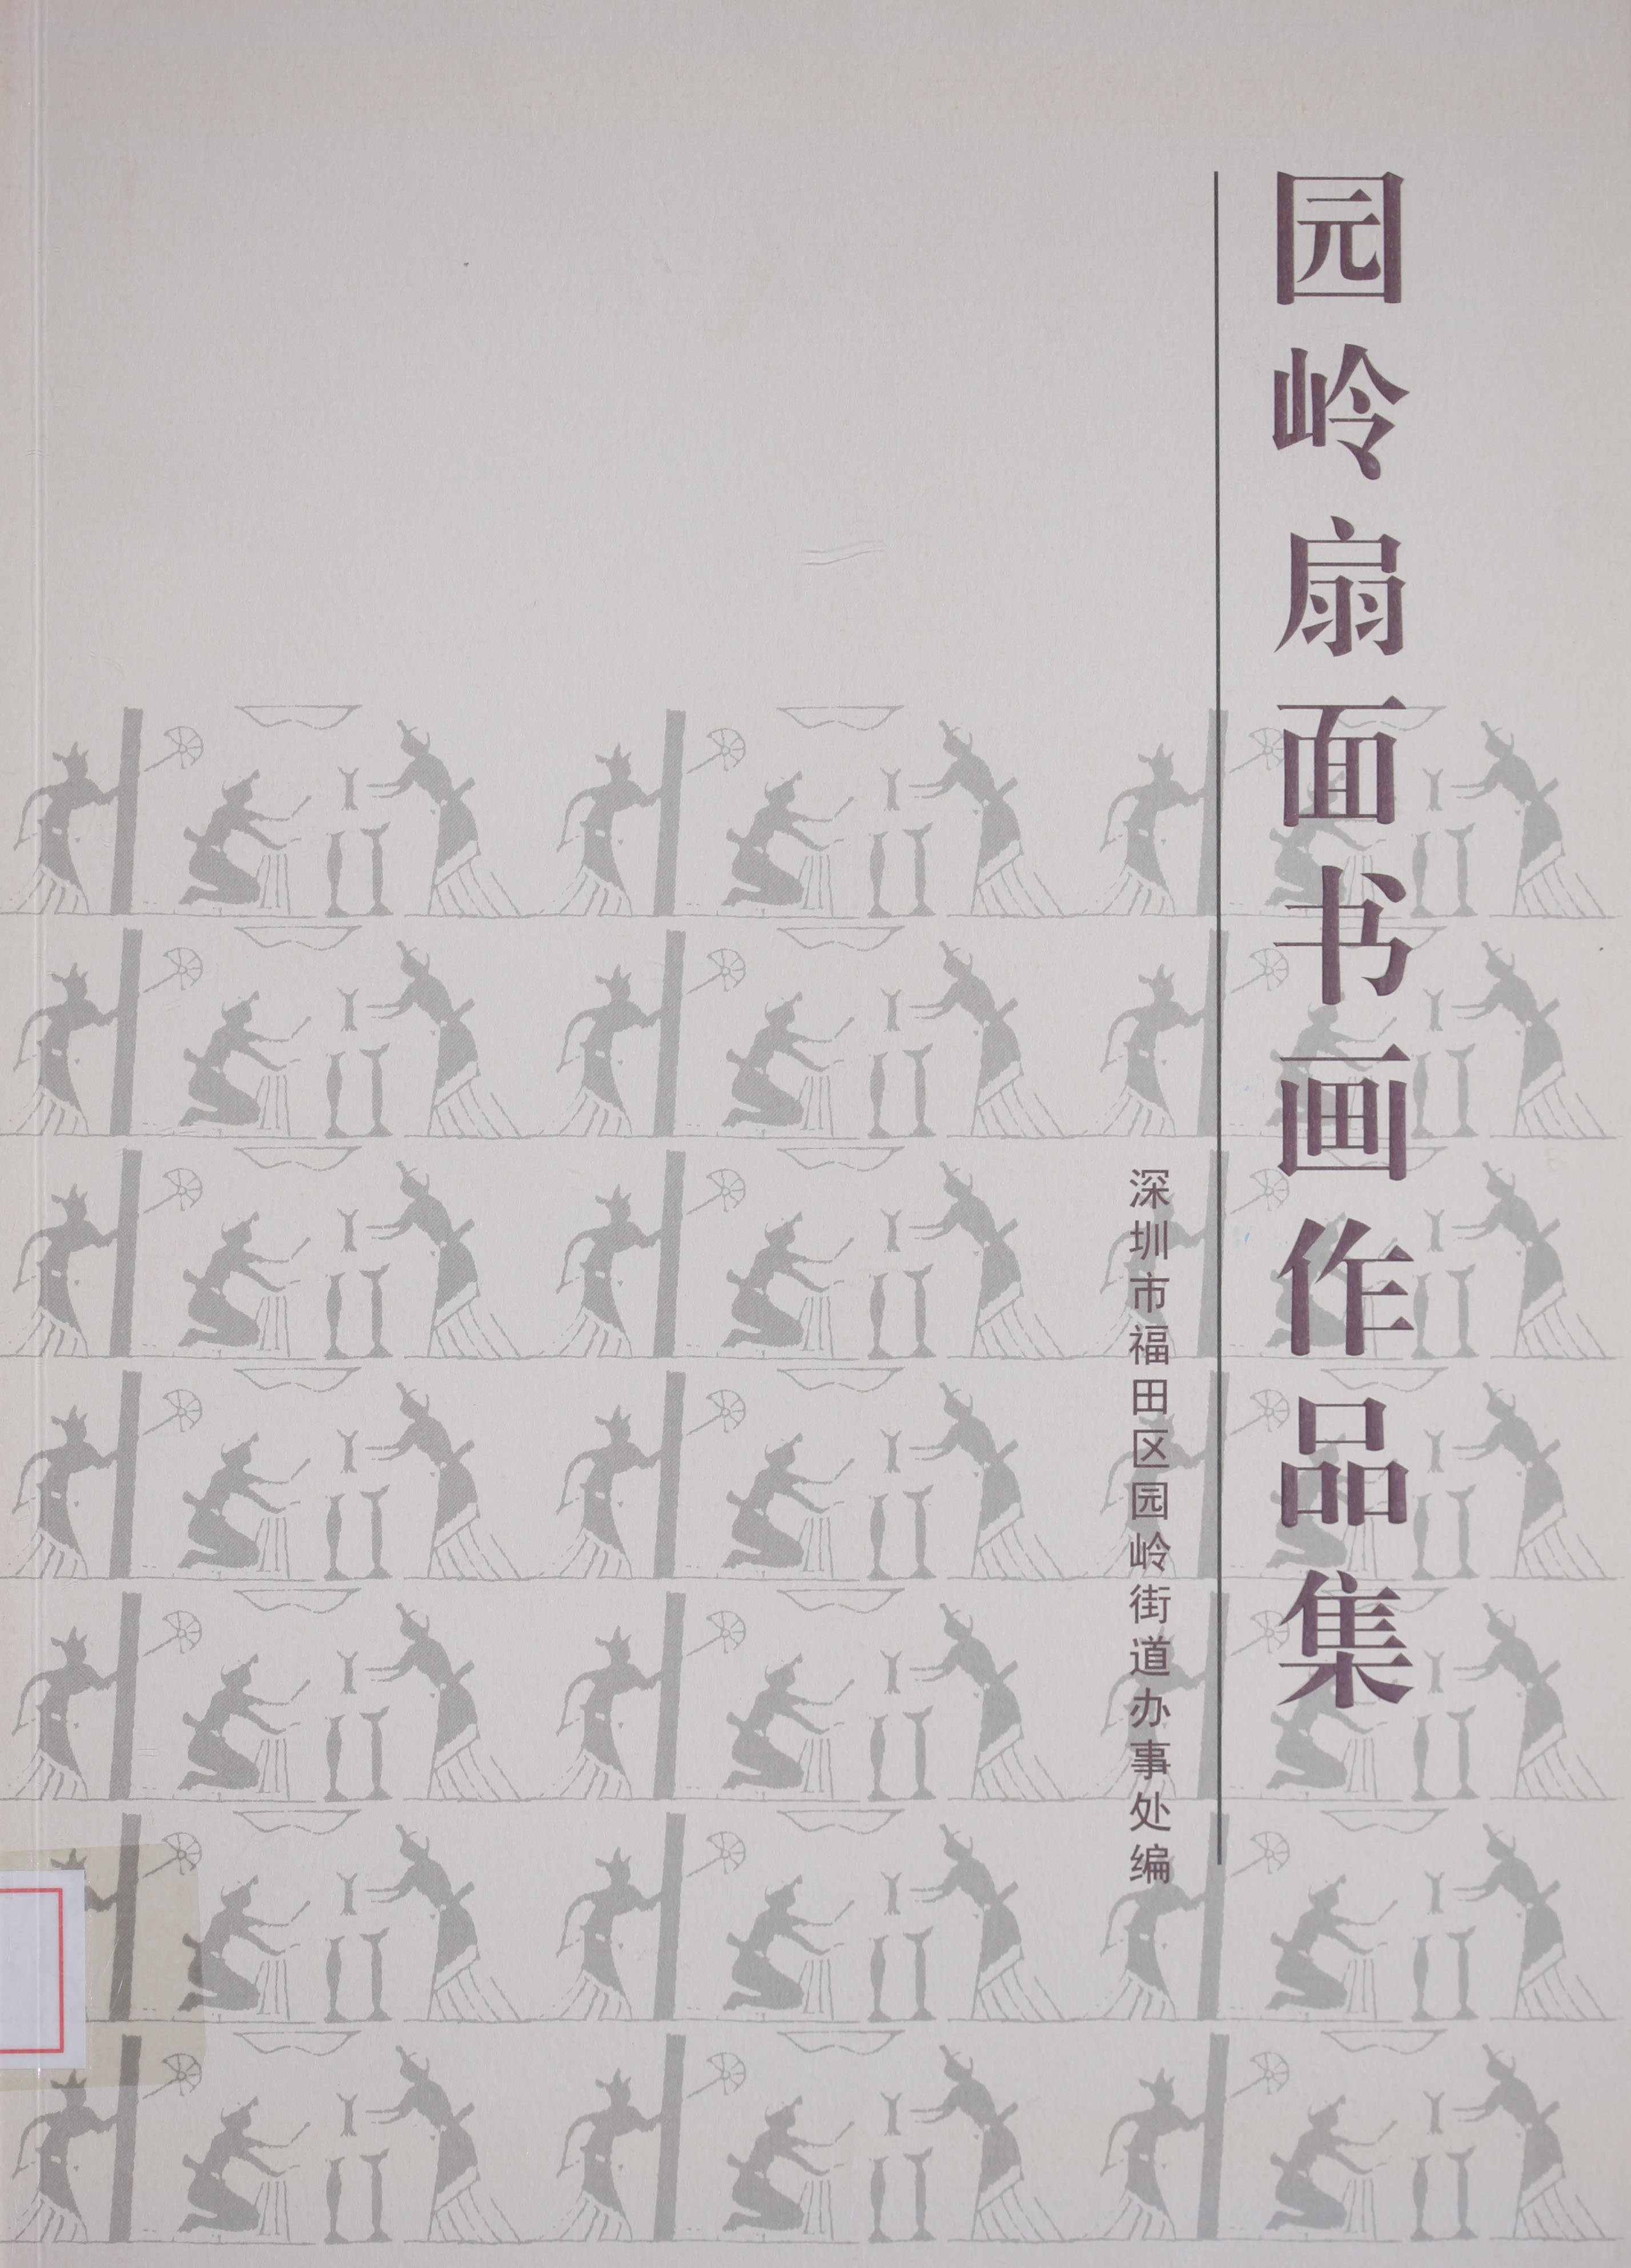 园岭扇面书画作品集
深圳市福田区园岭街道办事处编